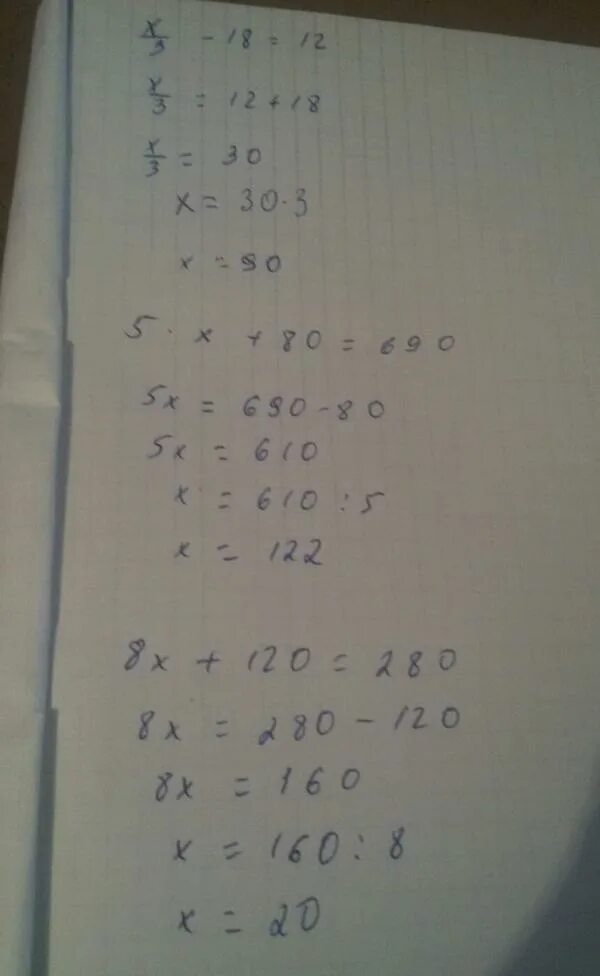 x/3 - 18 = 12
x/3 = 12 + 18
x/3 = 30
x = 30 · 3
x = 90
5 · x + 80 = 690
5x = 690 - 80
5x = 610
x = 610 : 5
x = 122
8x + 120 = 280
8x = 280 - 120
8x = 160
x = 160 : 8
x = 20